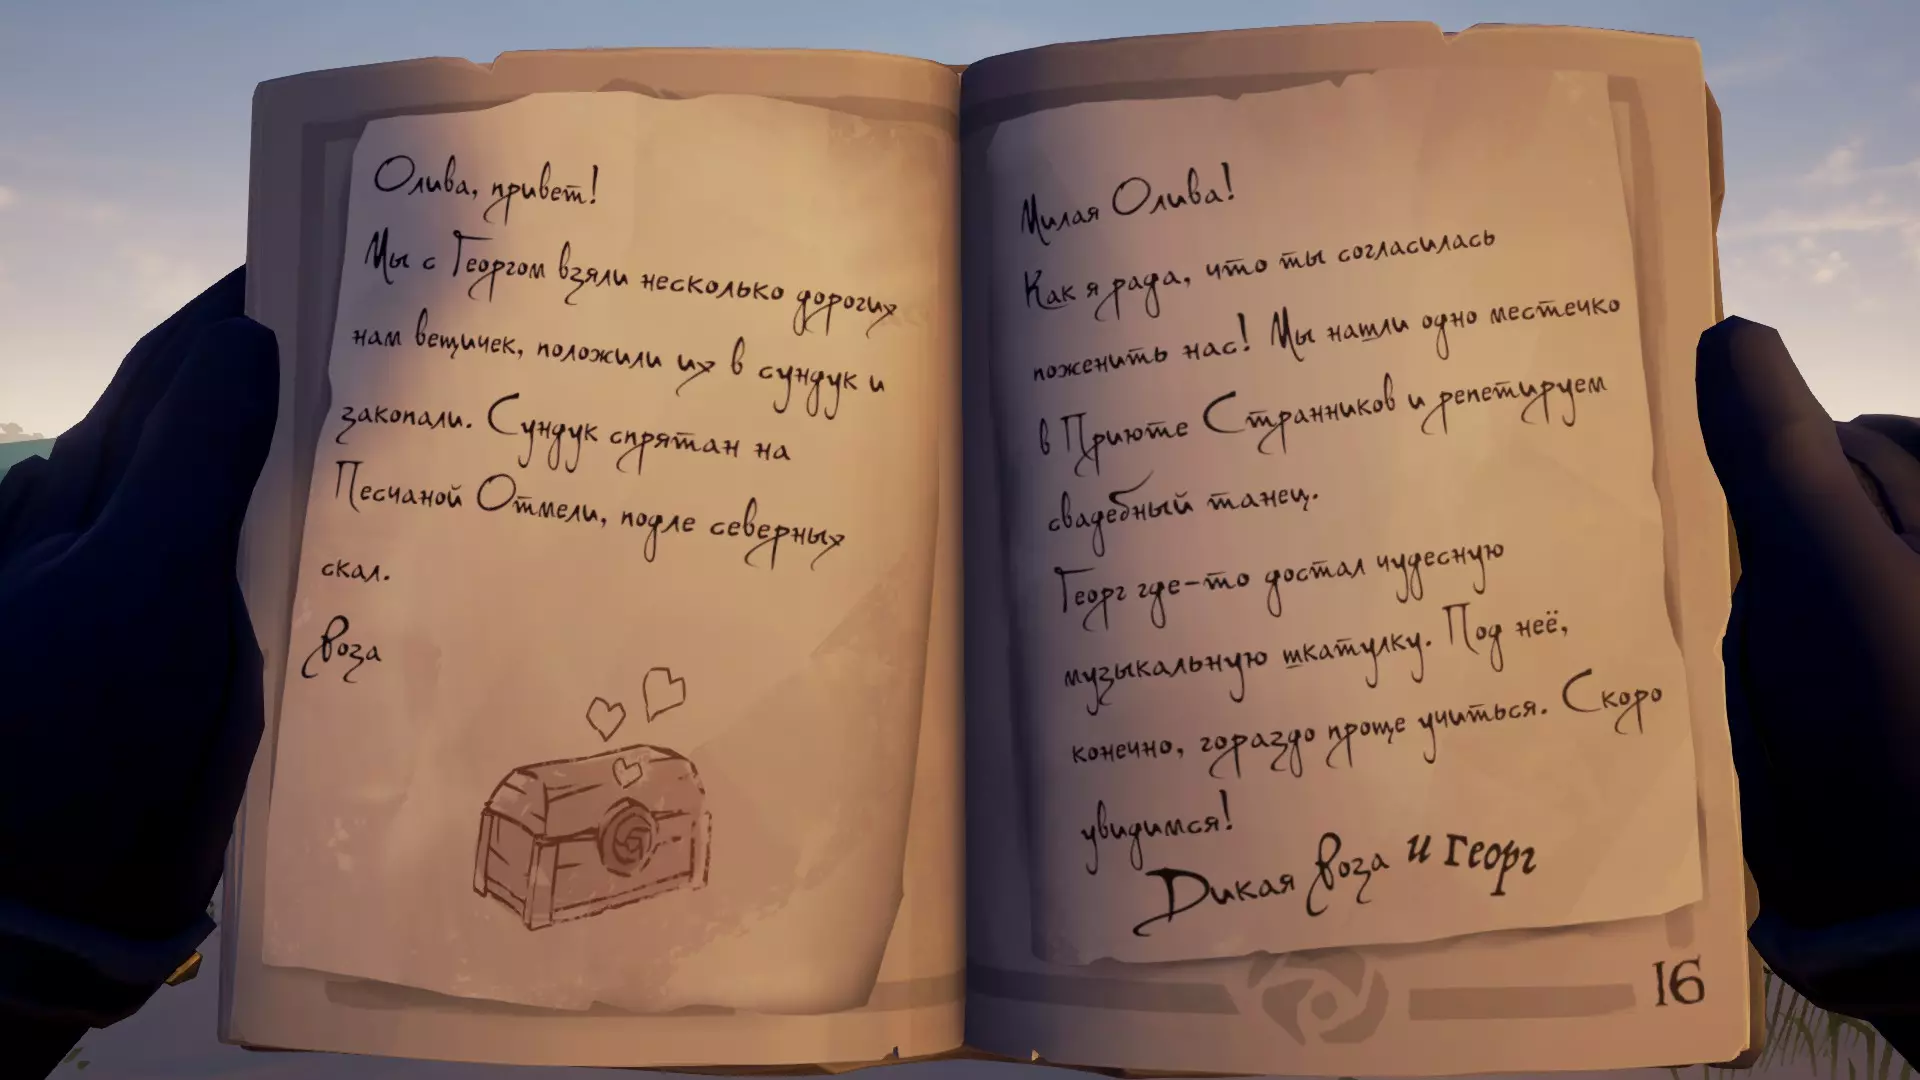 Олива, привет!
Мы с Георгом взяли несколько дорогих
нам вещичек, положили их в сундук и
закопали. Сундук спрятан на
Песчаной Отмели, подле северных
скал.
Роза
Милая Олива!
Как я рада, что ты согласилась
поженить нас! Мы нашли одно местечко
в Приюте Странников и репетируем
свадебный танец.
Георг где-то достал чудесную
музыкальную шкатулку. Под неё,
конечно, гораздо проще учиться. Скоро
увидимся!
Дикая Роза и Георг
16